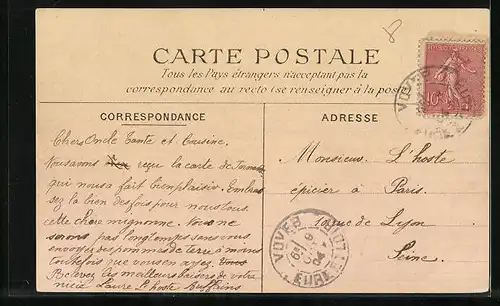 8
CARTE POSTALE
Tous les Pays étrangers n'acceptent pas la
correspondance au recto (se renseigner à la poste)
CORRESPONDANCE
Chers Oncle Tante et Cousine.
Nous avons reçu la carte de
qui nous a fait bien plaisir. Embras
sez la bien des fois pour nous tous
cette chère mignonne. Vous ne
serons pas longtemps sans vous
envoyer des pommes de terre à moins
toutefois que vous en ayez.
Recevez les meilleurs baisers de votre
nièce Laure L'hoste
ADRESSE
Monsieur L'hoste
épicier à Paris.
de Lyon
Seine.
10
VOVES
VOVES
9
04
EURE